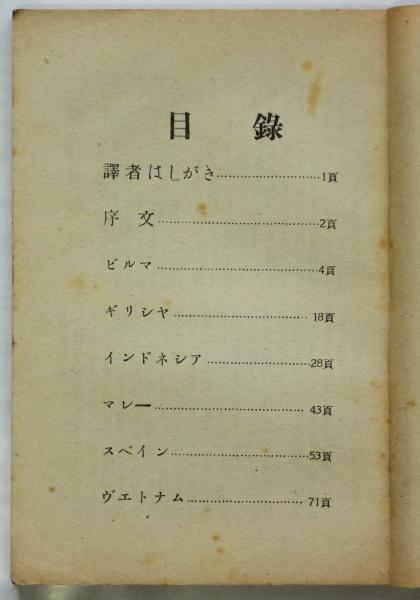 目錄
譯者はしがき……………………1頁
序文……………………2頁
ビルマ……………………4頁
ギリシヤ……………………18頁
インドネシア……………………28頁
マレー……………………43頁
スペイン……………………53頁
ヴエトナム……………………71頁